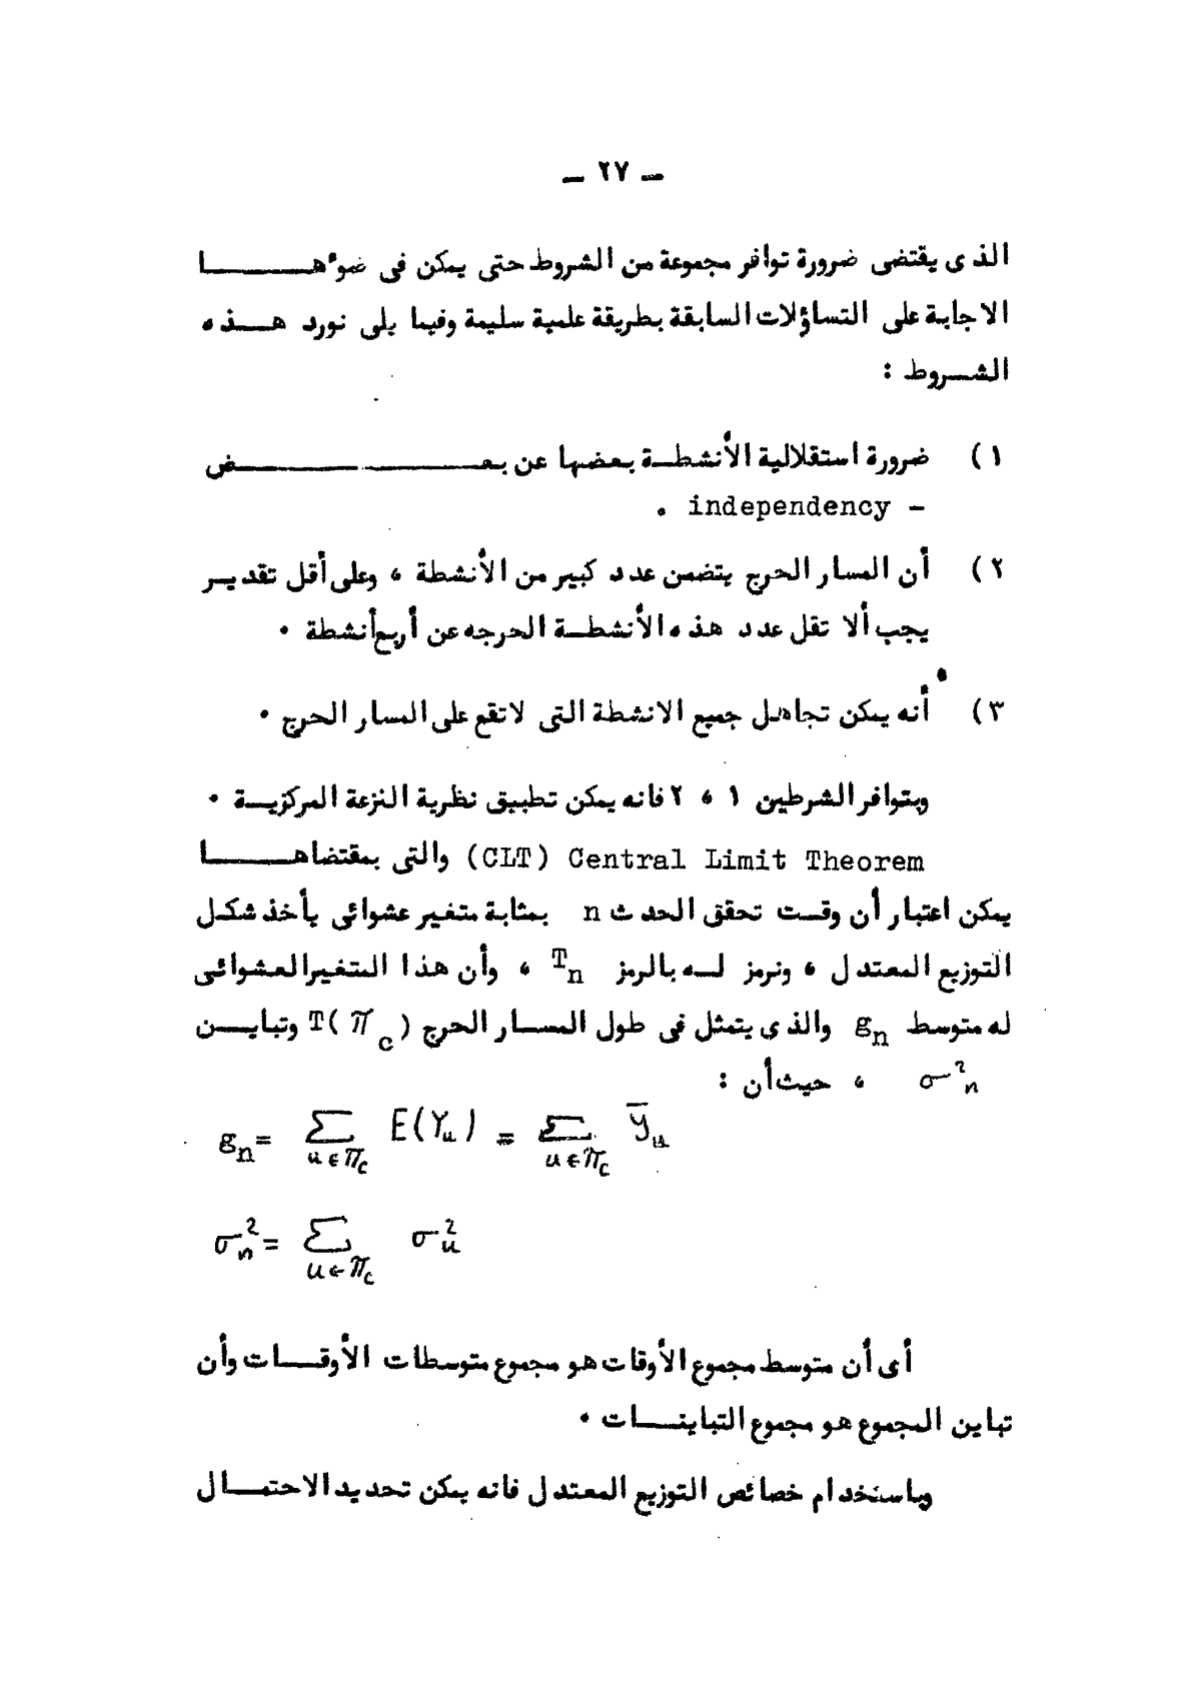 — ٢٧ —
الذى يقتضى ضرورة توافر مجموعة من الشروط حتى يمكن فى ضوءها
الاجابة على التساؤلات السابقة بطريقة علمية سليمة وفيما يلى نورد هذه
الشروط :
١) ضرورة استقلالية الأنشطة بعضها عن بعض
– independency .
٢) أن المسار الحرج يتضمن عدد كبير من الأنشطة ، وعلى أقل تقدير
يجب ألا تقل عدد هذه الأنشطة الحرجه عن أربع أنشطة .
٣) أنه يمكن تجاهل جميع الانشطة التى لاتقع على المسار الحرج .
وبتوافر الشرطين ١ ، ٢ فانه يمكن تطبيق نظرية النزعة المركزية .
Central Limit Theorem (CLT) والتى بمقتضاها
يمكن اعتبار أن وقت تحقق الحدث n بمثابة متغير عشوائى يأخذ شكل
التوزيع المعتدل ، ونرمز له بالرمز Tₙ ، وأن هذا المتغير العشوائى
له متوسط gₙ والذى يتمثل فى طول المسار الحرج T(π_c) وتباين
σ²ₙ ، حيث أن :
gₙ = Σ_{u∈π_c} E(Y_u) = Σ_{u∈π_c} ȳ_u
σₙ² = Σ_{u∈π_c} σ_u²
أى أن متوسط مجموع الأوقات هو مجموع متوسطات الأوقات وأن
تباين المجموع هو مجموع التباينات .
وباستخدام خصائص التوزيع المعتدل فانه يمكن تحديد الاحتمال